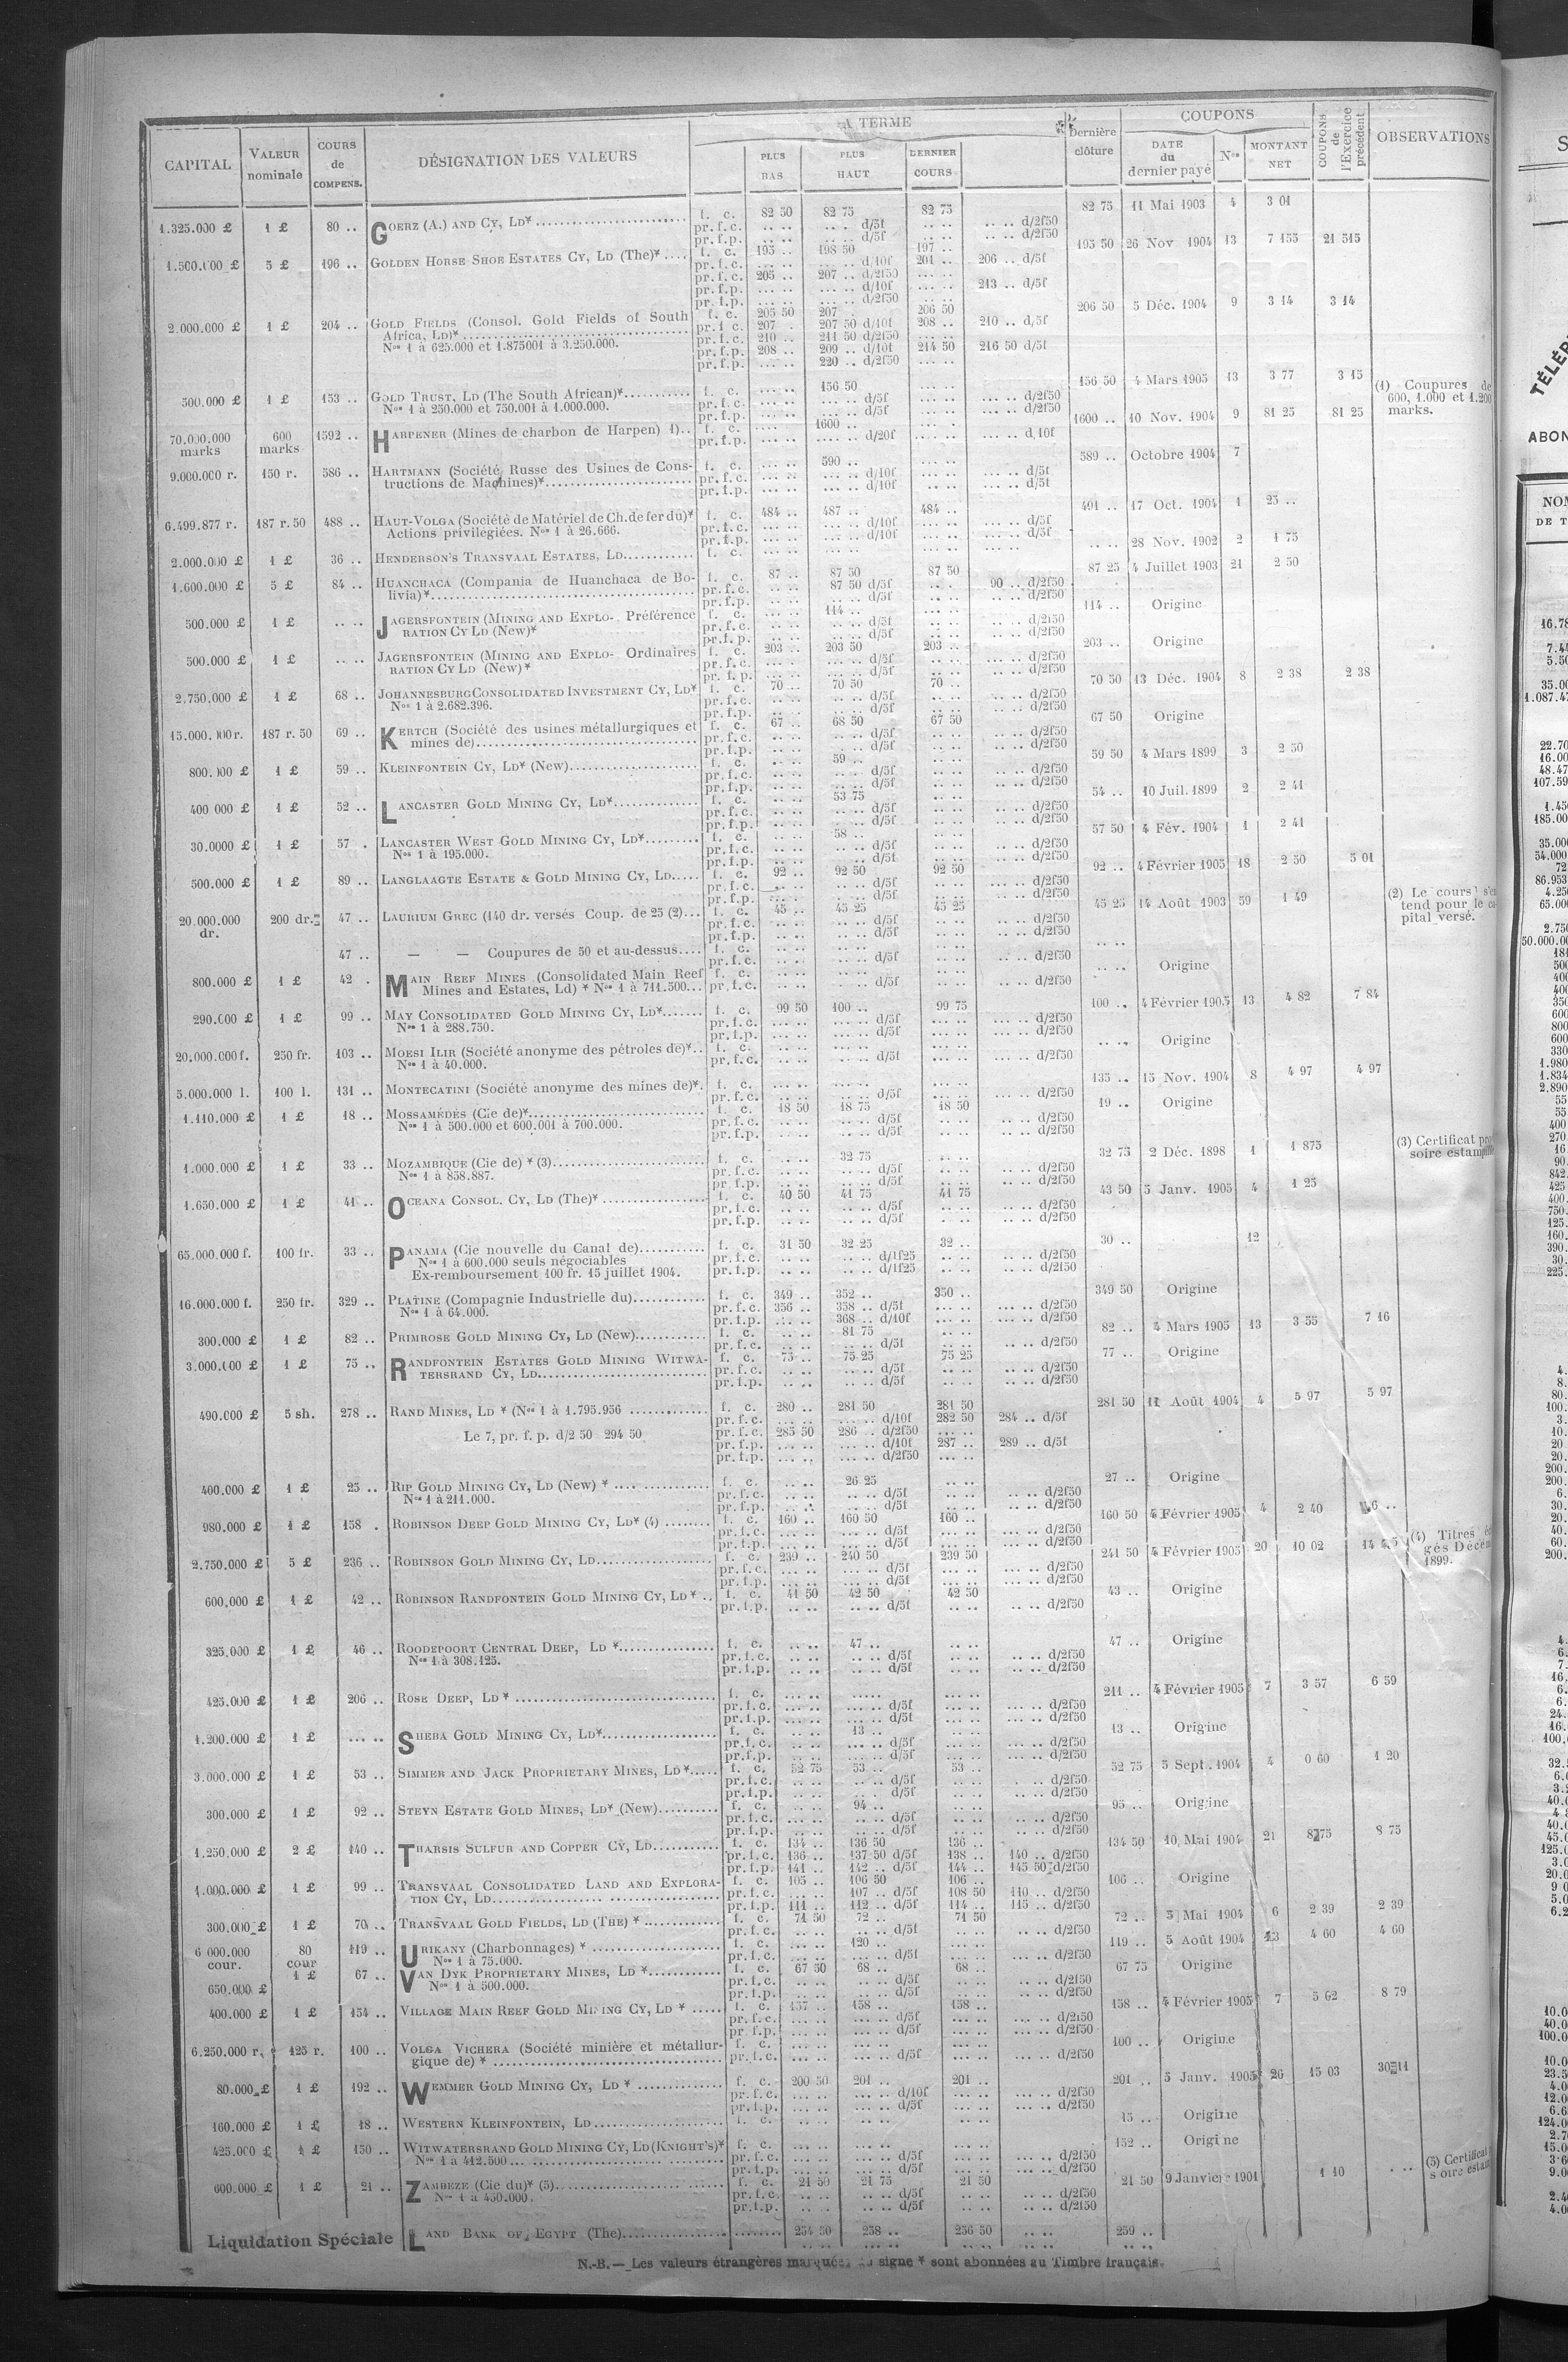 CAPITAL VALEUR nominale COURS de COMPENS. DÉSIGNATION DES VALEURS A TERME PLUS BAS PLUS HAUT DERNIER COURS Dernière clôture COUPONS DATE du dernier payé Nos MONTANT NET COUPONS de l'Exercice précédent OBSERVATIONS
1.325.000 £ 1 £ 80 .. GOERZ (A.) AND CY, LD* f. c. 82 50 82 75 82 75 82 75 11 Mai 1903 4 3 01
pr.f.c. .. .. .. . d/5f .. .. .. .. d/2f50
pr.f.p. .. .. .. .. d/5f .. .. .. .. d/2f50
1.500.000 £ 5 £ 196 .. GOLDEN HORSE SHOE ESTATES CY, LD (The)* f. c. 195 .. 198 50 197 .. 195 50 26 Nov 1904 13 7 155 21 515
pr.f.c. ... .. ... .. d/10f 201 .. 206 .. d/5f
pr.f.c. 205 .. 207 .. d/2f50 ... ..
pr.f.p. ... .. ... .. d/10f ... .. 213 .. d/5f
pr.f.p. ... .. ... .. d/2f50 .. ..
2.000.000 £ 1 £ 204 .. GOLD FIELDS (Consol. Gold Fields of South f. c. 205 50 207 .. 206 50 206 50 5 Déc. 1904 9 3 14 3 14
Africa, LD)* pr.f.c. 207 . 207 50 d/10f 208 .. 210 .. d/5f
Nos 1 à 625.000 et 1.875001 à 3.250.000. pr.f.c. 210 .. 211 50 d/2f50 ... ..
pr.f.p. 208 .. 209 .. d/10f 214 50 216 50 d/5f
pr.f.p. ... .. 220 .. d/2f50 ... ..
500.000 £ 1 £ 153 .. GOLD TRUST, LD (The South African)* f. c. ... .. 156 50 ... .. 156 50 4 Mars 1905 13 3 77 3 15 (1) Coupures de
Nos 1 à 250.000 et 750.001 à 1.000.000. pr.f.c. ... .. ... .. d/5f ... .. ... .. d/2f50 600, 1.000 et 1.200
pr.f.p. ... .. ... .. d/5f ... .. ... .. d/2f50 marks.
70.000.000 marks 600 marks 1592 .. HARPENER (Mines de charbon de Harpen) 1).. f. c. .... .. 1600 .. .... .. 1600 .. 10 Nov. 1904 9 81 25 81 25
pr.f.p. .... .. .... .. d/20f .... .. ... .. d,10f
9.000.000 r. 150 r. 586 .. HARTMANN (Société Russe des Usines de Cons- f. c. ... .. 590 .. ... .. 589 .. Octobre 1904 7
tructions de Machines)* pr.f.c. ... .. ... .. d/10f ... .. ... .. d/5f
pr.f.p. ... .. ... .. d/10f ... .. ... .. d/5f
6.499.877 r. 187 r.50 488 .. HAUT-VOLGA (Société de Matériel de Ch.de fer du)* f. c. 484 .. 487 .. 484 .. 491 .. 17 Oct. 1904 1 25 ..
Actions privilégiées. Nos 1 à 26.666. pr.f.c. ... .. ... .. d/10f ... .. ... .. d/5f
pr.f.p. ... .. ... .. d/10f ... .. ... .. d/5f
2.000.000 £ 1 £ 36 .. HENDERSON'S TRANSVAAL ESTATES, LD f. c. ... .. ... .. ... .. .. .. 28 Nov. 1902 2 1 75
1.600.000 £ 5 £ 84 .. HUANCHACA (Compania de Huanchaca de Bo- f. c. 87 .. 87 50 87 50 87 25 4 Juillet 1903 21 2 50
livia)* pr.f.c. .. .. 87 50 d/5f .. .. 90 .. d/2f50
pr.f.p. .. .. .. .. d/5f .. .. .. .. d/2f50
500.000 £ 1 £ .. .. JAGERSFONTEIN (MINING AND EXPLO- Préférence f. c. ... .. 114 .. ... .. 114 .. Origine
RATION CY LD (New)* pr.f.c. .. .. .. .. d/5f .. .. .. .. d/2f50
pr.f.p. .. .. .. .. d/5f .. .. .. .. d/2f50
500.000 £ 1 £ ... .. JAGERSFONTEIN (MINING AND EXPLO- Ordinaires f. c. 203 .. 203 50 203 .. 203 .. Origine
RATION CY LD (New)* pr.f.c. ... .. ... .. d/5f ... .. ... .. d/2f50
pr.f.p. ... .. ... .. d/5f ... .. ... .. d/2f50
2.750.000 £ 1 £ 68 .. JOHANNESBURG CONSOLIDATED INVESTMENT CY, LD* f. c. 70 .. 70 50 70 .. 70 50 13 Déc. 1904 8 2 38 2 38
Nos 1 à 2.682.396. pr.f.c. .. .. .. .. d/5f .. .. .. .. d/2f50
pr.f.p. .. .. .. .. d/5f .. .. .. .. d/2f50
187 r.50 69 .. KERTCH (Société des usines métallurgiques et f. c. 67 .. 68 50 67 50 67 50 Origine
mines de) pr.f.c. .. .. .. .. d/5f .. .. .. .. d/2f50
pr.f.p. .. .. .. .. d/5f .. .. .. .. d/2f50
1 £ 59 .. KLEINFONTEIN CY, LD* (New) f. c. .. .. 59 .. .. .. 59 50 4 Mars 1899 3 2 50
pr.f.c. .. .. .. .. d/5f .. .. .. .. d/2f50
pr.f.p. .. .. .. .. d/5f .. .. .. .. d/2f50
400 000 £ 1 £ 52 .. LANCASTER GOLD MINING CY, LD* f. c. .. .. 53 75 .. .. 54 .. 10 Juil. 1899 2 2 41
pr.f.c. .. .. .. .. d/5f .. .. .. .. d/2f50
pr.f.p. .. .. .. .. d/5f .. .. .. .. d/2f50
30.0000 £ 1 £ 57 . LANCASTER WEST GOLD MINING CY, LD* f. c. .. .. 58 .. .. .. 57 50 4 Fév. 1904 1 2 41
Nos 1 à 195.000. pr.f.c. .. .. .. .. d/5f .. .. .. .. d/2f50
pr.f.p. .. .. .. .. d/5f .. .. .. .. d/2f50
500.000 £ 1 £ 89 .. LANGLAAGTE ESTATE & GOLD MINING CY, LD f. c. 92 .. 92 50 92 50 92 .. 4 Février 1905 18 2 50 5 01
pr.f.c. .. .. .. .. d/5f .. .. ... .. d/2f50
pr.f.p. .. .. .. .. d/5f .. .. ... .. d/2f50
20.000.000 dr. 200 dr. 47 .. LAURIUM GREC (140 dr. versés Coup. de 25 (2) f. c. 45 .. 45 25 45 25 45 25 14 Août 1903 59 1 49 (2) Le cours s'en
pr.f.c. .. .. .. .. d/5f .. .. .. .. d/2f50 tend pour le ca
pr.f.p. .. .. .. .. d/5f .. .. .. .. d/2f50 pital versé.
47 .. — — Coupures de 50 et au-dessus f. c. .. .. .. .. .. .. .. ..
pr.f.c. .. .. .. .. d/5f .. .. .. .. d/2f50
800.000 £ 1 £ 42 . MAIN REEF MINES (Consolidated Main Reef f. c. .. .. .. .. .. .. .. .. Origine
Mines and Estates, Ld) * Nos 1 à 711.500 pr.f.c. .. .. .. .. d/5f .. .. .. .. d/2f50
290.000 £ 1 £ 99 .. MAY CONSOLIDATED GOLD MINING CY, LD* f. c. 99 50 100 .. 99 75 100 .. 4 Février 1905 13 4 82 7 84
Nos 1 à 288.750. pr.f.c. ... .. ... .. d/5f ... .. ... .. d/2f50
pr.f.p. ... .. ... .. d/5f ... .. ... .. d/2f50
20.000.000 f. 250 fr. 103 .. MOESI ILIR (Société anonyme des pétroles de)* f. c. ... .. ... .. ... .. .. .. Origine
Nos 1 à 40.000. pr.f.c. ... .. ... .. d/5f ... .. ... .. d/2f50
5.000.000 l. 100 l. 131 .. MONTECATINI (Société anonyme des mines de)* f. c. ... .. ... .. ... .. 135 .. 15 Nov. 1904 8 4 97 4 97
pr.f.c. ... .. ... .. d/5f ... .. ... .. d/2f50
1.110.000 £ 1 £ 18 .. MOSSAMÉDÈS (Cie de)* f. c. 18 50 18 75 18 50 19 .. Origine
Nos 1 à 500.000 et 600.001 à 700.000. pr.f.c. .. .. .. .. d/5f .. .. .. .. d/2f50
pr.f.p. .. .. .. .. d/5f .. .. .. .. d/2f50
1.000.000 £ 1 £ 33 .. MOZAMBIQUE (Cie de) * (3) f. c. .. .. 32 75 .. .. 32 75 2 Déc. 1898 1 1 875 (3) Certificat
Nos 1 à 858.887. pr.f.c. .. .. .. .. d/5f .. .. .. .. d/2f50 soire
pr.f.p. .. .. .. .. d/5f .. .. .. .. d/2f50
1.650.000 £ 1 £ 41 .. OCEANA CONSOL. CY, LD (The)* f. c. 40 50 41 75 41 75 43 50 5 Janv. 1905 4 1 25
pr.f.c. .. .. .. .. d/5f .. .. .. .. d/2f50
pr.f.p. .. .. .. .. d/5f .. .. .. .. d/2f50
65.000.000 f. 100 fr. 33 .. PANAMA (Cie nouvelle du Canal de) f. c. 31 50 32 25 32 .. 30 .. 12
Nos 1 à 600.000 seuls négociables pr.f.c. .. .. .. .. d/1f25 .. .. .. .. d/2f50
Ex-remboursement 100 fr. 15 juillet 1904. pr.f.p. .. .. .. .. d/1f25 .. .. .. .. d/2f50
16.000.000 f. 250 fr. 329 .. PLATINE (Compagnie Industrielle du) f. c. 349 .. 352 .. 350 .. 349 50 Origine
Nos 1 à 64.000. pr.f.c. 356 .. 358 .. d/5f ... .. ... .. d/2f50
pr.f.p. ... .. 368 .. d/10f ... .. ... .. d/2f50
300.000 £ 1 £ 82 .. PRIMROSE GOLD MINING CY, LD (New) f. c. .. .. 81 75 .. .. 82 .. 4 Mars 1905 13 3 55 7 16
pr.f.c. .. .. .. .. d/5f .. .. .. .. d/2f50
3.000.000 £ 1 £ 75 .. RANDFONTEIN ESTATES GOLD MINING WITWA- f. c. 75 .. 75 25 75 25 77 .. Origine
TERSRAND CY, LD pr.f.c. .. .. .. .. d/5f .. .. .. .. d/2f50
pr.f.p. .. .. .. .. d/5f .. .. .. .. d/2f50
490.000 £ 5 sh. 278 .. RAND MINES, LD * (Nos 1 à 1.795.956 f. c. 280 .. 281 50 281 50 281 50 11 Août 1904 4 5 97 5 97
pr.f.c. ... .. ... .. d/10f 282 50 284 .. d/5f
Le 7, pr. f. p. d/2 50 294 50 pr.f.c. 285 50 286 .. d/2f50 ... ..
pr.f.p. ... .. ... .. d/10f 287 .. 289 .. d/5f
pr.f.p. ... .. ... .. d/2f50 ... ..
400.000 £ 1 £ 25 .. RIP GOLD MINING CY, LD (New) * f. c. .. .. 26 25 .. .. 27 .. Origine
Nos 1 à 211.000. pr.f.c. .. .. .. .. d/5f .. .. .. .. d/2f50
pr.f.p. .. .. .. .. d/5f .. .. .. .. d/2f50
980.000 £ 1 £ 158 . ROBINSON DEEP GOLD MINING CY, LD* (4) f. c. 160 .. 160 50 160 .. 160 50 4 Février 1905 4 2 40
pr.f.c. ... .. ... .. d/5f ... .. ... .. d/2f50
pr.f.p. ... .. ... .. d/5f ... .. ... .. d/2f50
2.750.000 £ 5 £ 236 .. ROBINSON GOLD MINING CY, LD f. c. 239 .. 240 50 239 50 241 50 4 Février 1905 20 10 02 (4) Titres
pr.f.c. ... .. ... .. d/5f ... .. ... .. d/2f50 gés Décem
pr.f.p. ... .. ... .. d/5f ... .. ... .. d/2f50 1899.
600,000 £ 1 £ 42 .. ROBINSON RANDFONTEIN GOLD MINING CY, LD * f. c. 41 50 42 50 42 50 43 .. Origine
pr.f.p. .. .. .. .. d/5f .. .. .. .. d/2f50
325.000 £ 1 £ 46 .. ROODEPOORT CENTRAL DEEP, LD * f. c. .. .. 47 .. .. .. 47 .. Origine
Nos 1 à 308.125. pr.f.c. .. .. .. .. d/5f .. .. .. .. d/2f50
pr.f.p. .. .. .. .. d/5f .. .. .. .. d/2f50
425.000 £ 1 £ 206 .. ROSE DEEP, LD * f. c. ... .. ..... ... .. 211 .. 4 Février 1905 7 3 57 6 59
pr.f.c. ... .. ... .. d/5f ... .. ... .. d/2f50
pr.f.p. ... .. ... .. d/5f ... .. ... .. d/2f50
1.200.000 £ 1 £ ... .. SHEBA GOLD MINING CY, LD* f. c. .. .. 13 .. .. .. 13 .. Origine
pr.f.c. .. .. .. .. d/5f .. .. .. .. d/2f50
pr.f.p. .. .. .. .. d/5f .. .. .. .. d/2f50
3.000.000 £ 1 £ 53 .. SIMMER AND JACK PROPRIETARY MINES, LD* f. c. 52 75 53 .. 53 .. 52 75 5 Sept. 1904 4 0 60 1 20
pr.f.c. .. .. .. .. d/5f .. .. . .. d/2f50
pr.f.p. .. .. .. . d/5f .. .. .. .. d/2f50
300.000 £ 1 £ 92 .. STEYN ESTATE GOLD MINES, LD* (New) f. c. .. .. 94 .. .. .. 95 .. Origine
pr.f.c. .. .. .. .. d/5f .. .. .. .. d/2f50
pr.f.p. .. .. .. .. d/5f .. .. .. .. d/2f50
1.250.000 £ 2 £ 140 .. THARSIS SULFUR AND COPPER CY, LD f. c. 134 .. 136 50 136 .. 134 50 10 Mai 1904 21 8 75 8 75
pr.f.c. 136 .. 137 50 d/5f 138 .. 140 .. d/2f50
pr.f.p. 141 .. 142 .. d/5f 144 .. 145 50 d/2f50
1.000.000 £ 1 £ 99 .. TRANSVAAL CONSOLIDATED LAND AND EXPLORA- f. c. 105 .. 106 50 106 .. 106 .. Origine
TION CY, LD pr.f.c. ... .. 107 .. d/5f 108 50 110 .. d/2f50
pr.f.p. 111 .. 112 .. d/5f 114 .. 115 .. d/2f50
300.000 £ 1 £ 70 .. TRANSVAAL GOLD FIELDS, LD (THE) * f. c. 71 50 72 .. 71 50 72 .. 5 Mai 1904 6 2 39 2 39
pr.f.c. .. .. .. .. d/5f .. .. .. .. d/2f50
6 000.000 cour. 80 cour 119 .. URIKANY (Charbonnages) * f. c. ... .. 120 .. ... .. 119 .. 5 Août 1904 13 4 60 4 60
Nos 1 à 75.000. pr.f.c. ... .. ... .. d/5f ... .. ... .. d/2f50
650.000 £ 1 £ 67 .. VAN DYK PROPRIETARY MINES, LD * f. c. 67 50 68 .. 68 .. 67 75 Origine
Nos 1 à 500.000. pr.f.c. .. .. .. .. d/5f .. .. .. .. d/2f50
pr.f.p. .. .. .. .. d/5f .. .. .. .. d/2f50
400.000 £ 1 £ 154 .. VILLAGE MAIN REEF GOLD MINING CY, LD * f. c. 157 .. 158 .. 158 .. 158 .. 4 Février 1905 7 5 62 8 79
pr.f.c. ... .. ... .. d/5f ... .. ... .. d/2f50
pr f.p. ... .. ... .. d/5f ... .. ... .. d/2f50
6.250.000 r. 125 r. 100 .. VOLGA VICHERA (Société minière et métallur- f. c. ... .. ... .. ... .. 100 .. Origine
gique de) * pr.f.c. ... .. ... .. d/5f ... .. ... .. d/2f50
80.000 £ 1 £ 192 .. WEMMER GOLD MINING CY, LD * f. c. 200 50 201 .. 201 .. 201 .. 5 Janv. 1905 26 15 03 30 11
pr.f.c. ... .. ... .. d/10f ... .. ... .. d/2f50
pr.f.p. ... .. ... .. d/5f ... .. ... .. d/2f50
160.000 £ 1 £ 18 .. WESTERN KLEINFONTEIN, LD f. c. .. .. .. .. .. .. 15 .. Origine
425.000 £ 1 £ 150 .. WITWATERSRAND GOLD MINING CY, LD (KNIGHT'S)* f. c. ... .. ... .. ... .. 152 .. Origine
Nos 1 à 412.500 pr.f.c. ... .. ... .. d/5f ... .. ... .. d/2f50
pr.f.p. ... .. ... .. d/5f ... .. ... .. d/2f50
600.000 £ 1 £ 21 .. ZAMBÈZE (Cie du)* (5) f. c. 21 50 21 75 21 50 21 50 9 Janvier 1901 1 10 .. .. (5) Certificat
Nos 1 à 450.000. pr.f.c. .. .. .. .. d/5f .. .. .. .. d/2f50 soire
pr.f.p. .. .. .. .. d/5f .. .. .. .. d/2f50
Liquidation Spéciale LAND BANK OF EGYPT (The) 254 50 258 .. 256 50 .. .. 259 ..
N.-B. — Les valeurs étrangères marquées du signe * sont abonnées au Timbre français.
TÉLÉP
ABON
NOM
DE T